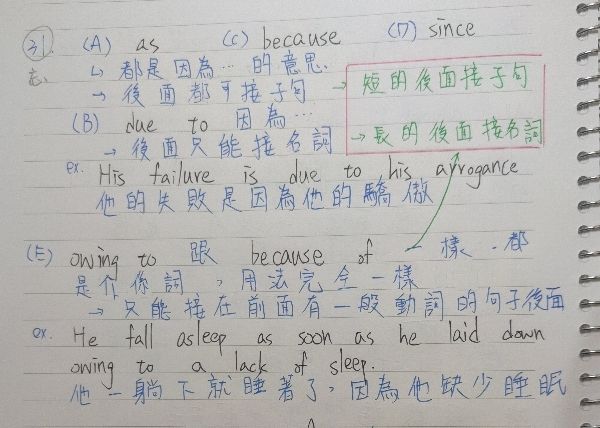 31. (A) as (C) because (D) since
忘、 ↳ 都是因為…的意思.
→ 後面都可接子句 → 短的後面接子句
(B) due to 因為…
→ 後面只能接名詞 → 長的後面接名詞
ex. His failure is due to his arrogance
他的失敗是因為他的驕傲
(E) owing to 跟 because of 一樣.都
是介係詞,用法完全一樣
→ 只能接在前面有一般動詞的句子後面
ex. He fall asleep as soon as he laid down
owing to a lack of sleep.
他一躺下就睡著了,因為他缺少睡眠